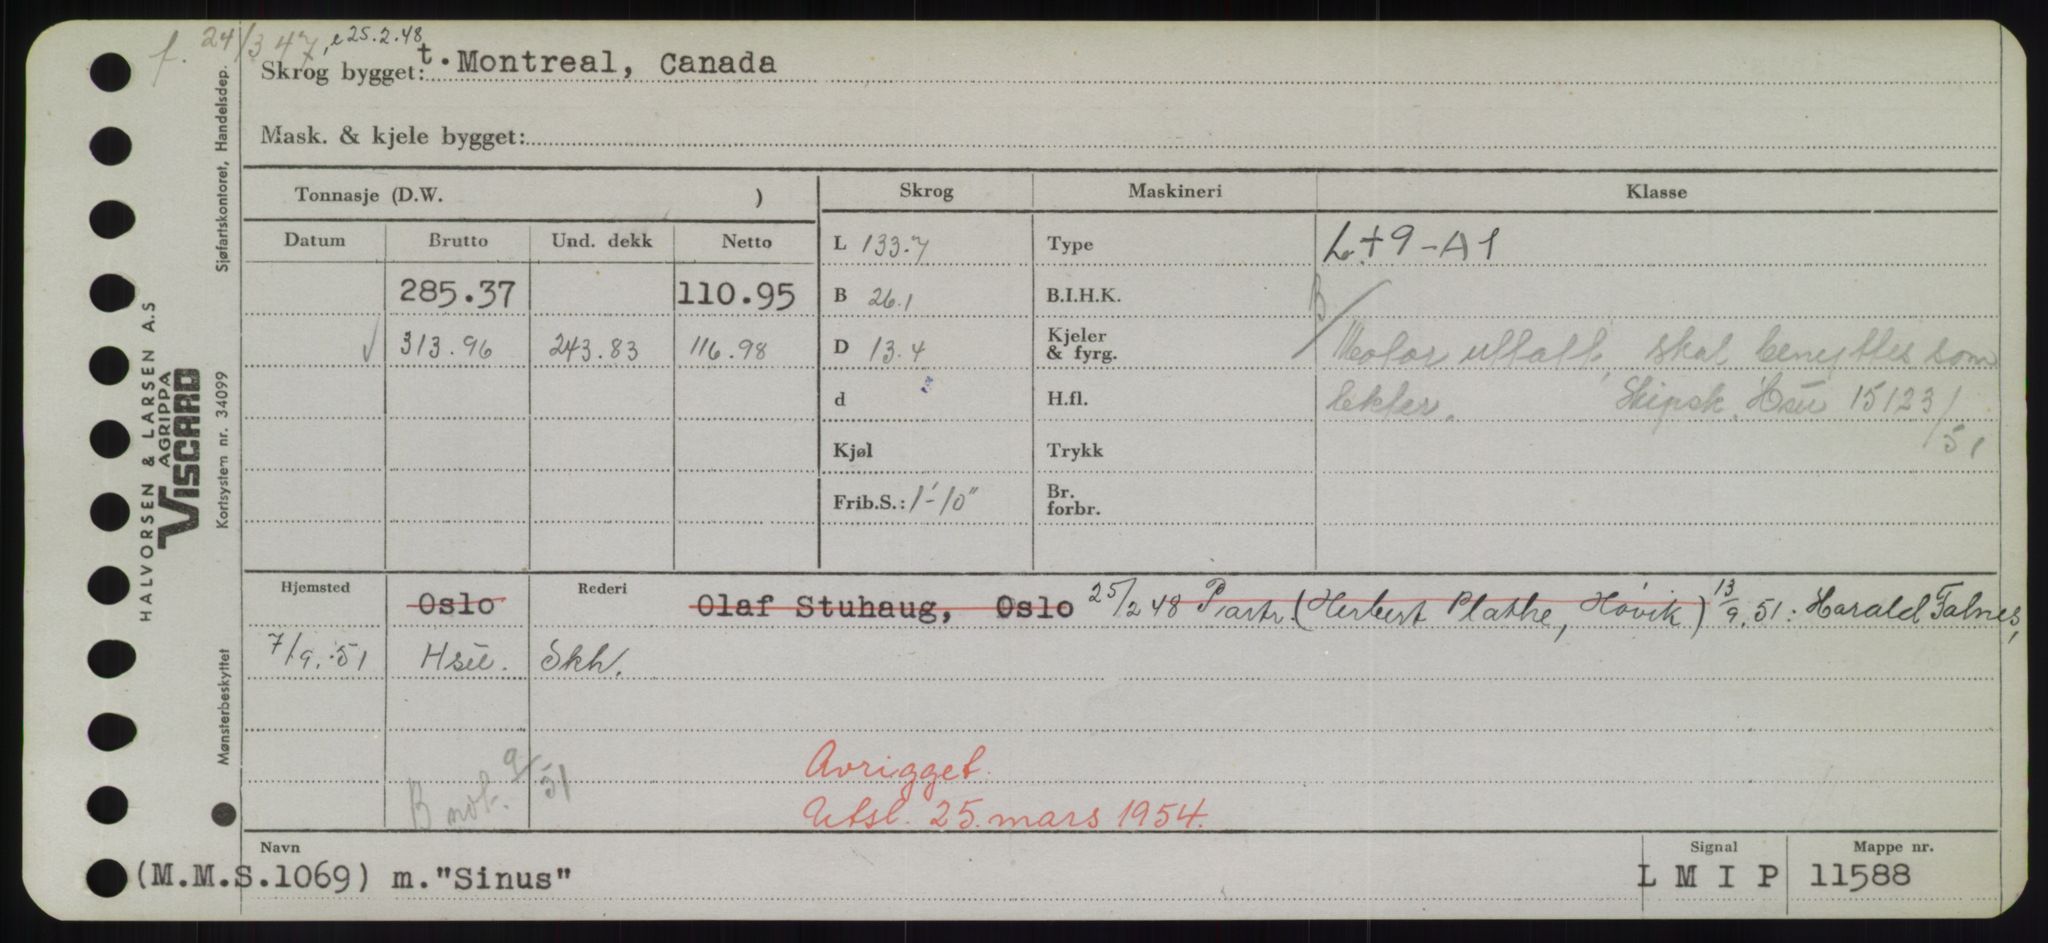 f. 24/3 47, e 25.2.48
Skrog bygget: t. Montreal, Canada
Mask. & kjele bygget:
Tonnasje (D.W. )
Skrog
Maskineri
Klasse
Datum Brutto Und. dekk Netto
L 133.7
Type
L + 9 - A 1
285.37 110.95
B 26.1
B.I.H.K.
B/
√ 313.96 243.83 116.98
D 13.4
Kjeler & fyrg.
Motor uttatt, skal benyttes som
d
H.fl.
lekter. Skipsk. Hsu 15123/51
Kjøl
Trykk
Frib.S.: 1'-10"
Br. forbr.
Hjemsted Oslo Rederi Olaf Stuhaug, Oslo 25/2 48 Partr. (Herbert Plathe, Høvik) 13/9.51: Harald Falnes,
7/9.51 Hsu. Skh.
B not. 9/51
Avrigget.
Utsl. 25. mars 1954.
Navn
(M.M.S.1069) m."Sinus"
Signal
L M I P
Mappe nr.
11588
HALVORSEN & LARSEN A.S
AGRIPPA
VISCARD
Kortsystem nr. 34099
Sjøfartskontoret, Handelsdep.
Mønsterbeskyttet